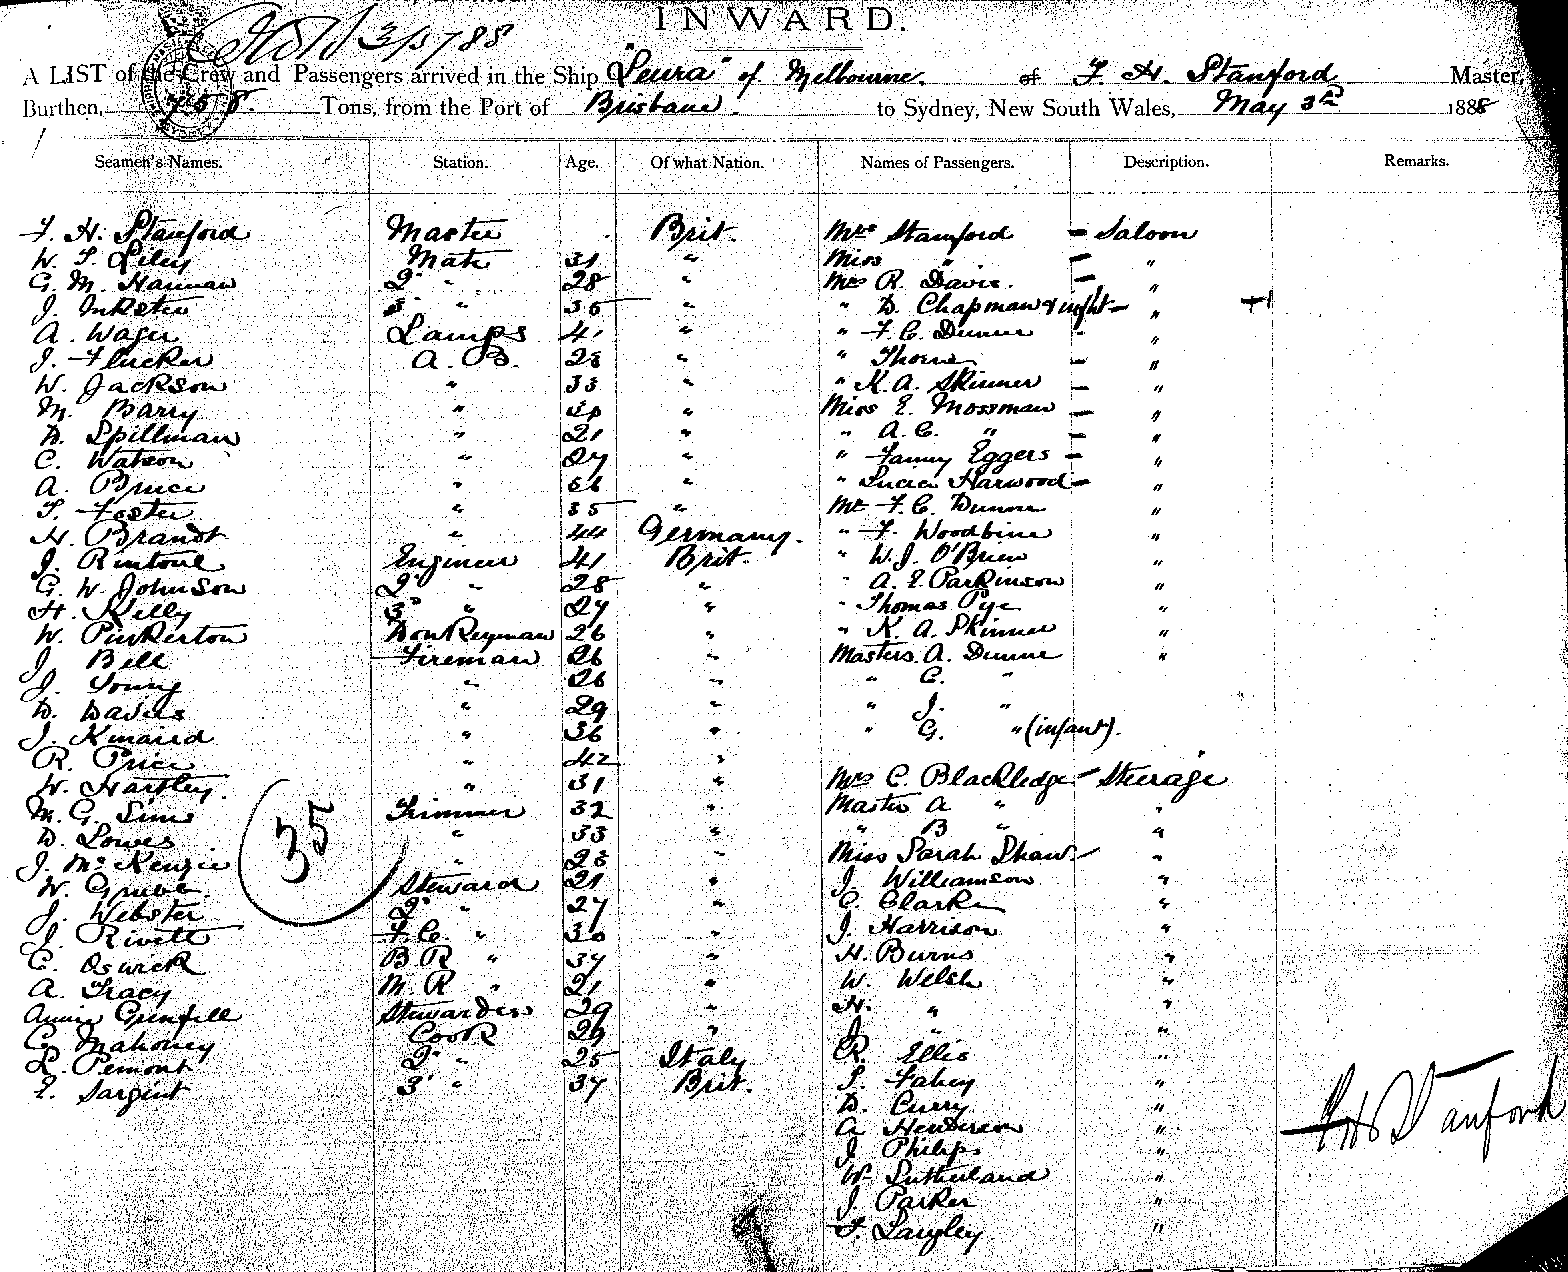 INWARD.
3/5/88
A LIST of the Crew and Passengers arrived in the Ship "Leura" of Melbourne. of F. H. Stanford Master,
Burthen, 758. Tons, from the Port of Brisbane. to Sydney, New South Wales, May 3rd 1888
Seamen's Names. Station. Age. Of what Nation. Names of Passengers. Description. Remarks.
F. H. Stanford Master Brit. Mrs Stanford - Saloon
W. T. Liley Mate 31 " Miss " - "
G. M. Hannan 2d " 28 " Mrs R. Davis. - "
J. Inkster 3 " 35 " " D. Chapman & inft - " +1
A. Wager Lamps 41 " " F. C. Dunne - "
J. Flucker A. B. 28 " " Thorne - "
W. Jackson " 33 " " K. A. Skinner - "
M. Barry " 30 " Miss E. Mossman - "
D. Spillman " 21 " " A. C. " - "
C. Watson " 27 " " Fanny Eggers - "
A. Bruce " 56 " " Lucia Harwood - "
T. Foster " 35 " Mr F. C. Dunne "
H. Brandt " 44 Germany. " F. Woodbine "
J. Rintoul Engineer 41 Brit. " W. J. O'Brien "
G. W. Johnson 2d " 28 " " A. E. Parkinson "
H. Kelly 3d " 27 " " Thomas Pye "
W. Pinkerton Donkeyman 26 " " K. A. Skinner "
J. Bell Fireman 26 " Masters A. Dunne "
J. Young " 26 " " C. "
D. Davies " 29 " " J. "
J. Kinaird " 36 " " G. " (infant).
R. Price " 42 "
W. Hartley. " 31 " Mrs C. Blackledge - Steerage
M. G. Sims Trimmer 32 " Master A " "
D. Lowes " 33 " " B " "
J. McKenzie " 23 " Miss Sarah Shaw - "
W. Steward 21 " J. Williamson "
J. Webster 2d " 27 " C. Clarke "
J. Rivett F. C. " 30 " J. Harrison "
C. Oswick B R " 37 " H. Burns "
A. Tracy M. R " 21 " W. Welsh "
Annie Grenfell Stewardess 29 " H. " "
C. Mahoney Cook 29 " J. " "
L. Pemont 2d " 25 Italy R. Ellis "
E. Sargent 3d " 37 Brit. T. Fahey "
D. Curry "
A Henderson "
J. Philips "
W. Sutherland "
J. Parker "
F. Langley "
35
F H Stanford